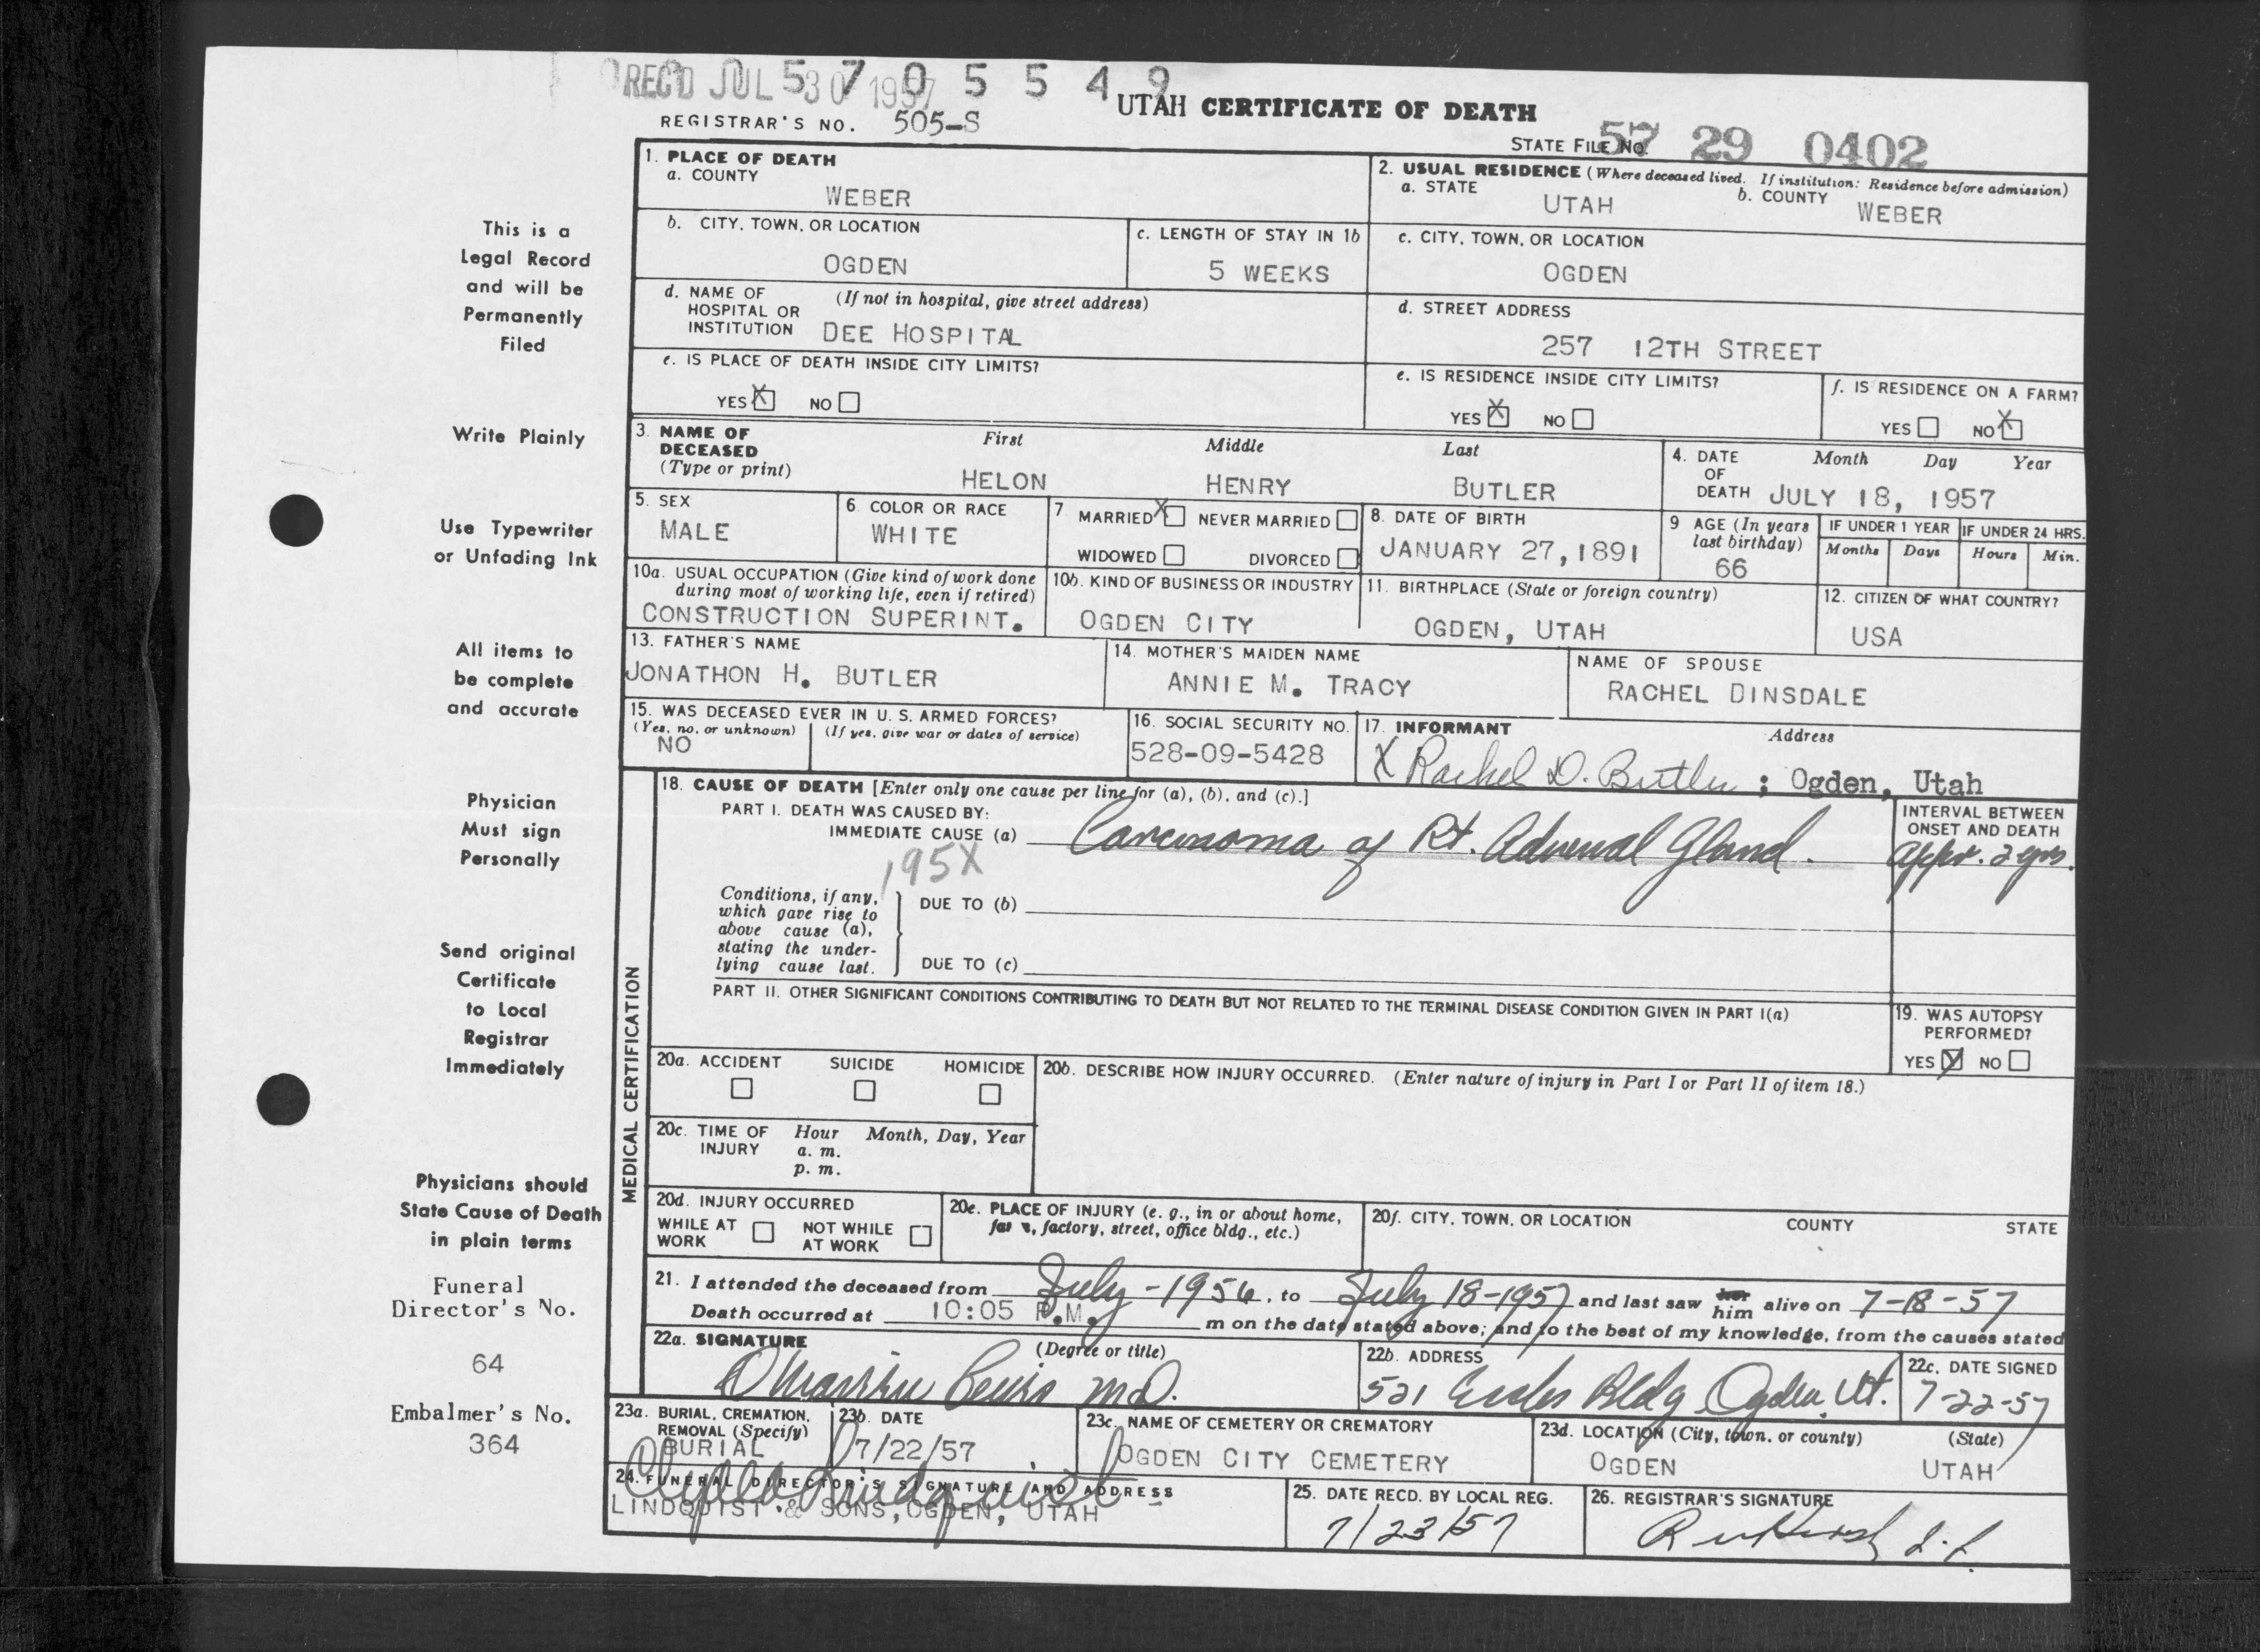 REC'D JUL 30 1957
5 7 0 5 5 4 9
UTAH CERTIFICATE OF DEATH
REGISTRAR'S NO. 505-S
STATE FILE NO. 57 29 0402
This is a
Legal Record
and will be
Permanently
Filed
Write Plainly
Use Typewriter
or Unfading Ink
All items to
be complete
and accurate
Physician
Must sign
Personally
Send original
Certificate
to Local
Registrar
Immediately
Physicians should
State Cause of Death
in plain terms
Funeral
Director's No.
64
Embalmer's No.
364
1. PLACE OF DEATH
a. COUNTY
WEBER
2. USUAL RESIDENCE (Where deceased lived. If institution: Residence before admission)
a. STATE UTAH b. COUNTY WEBER
b. CITY, TOWN, OR LOCATION
OGDEN
c. LENGTH OF STAY IN 1b
5 WEEKS
c. CITY, TOWN, OR LOCATION
OGDEN
d. NAME OF (If not in hospital, give street address)
HOSPITAL OR
INSTITUTION DEE HOSPITAL
d. STREET ADDRESS
257 12TH STREET
e. IS PLACE OF DEATH INSIDE CITY LIMITS?
YES X NO
e. IS RESIDENCE INSIDE CITY LIMITS?
YES X NO
f. IS RESIDENCE ON A FARM?
YES NO X
3. NAME OF DECEASED (Type or print)
First Middle Last
HELON HENRY BUTLER
4. DATE OF DEATH Month Day Year
JULY 18, 1957
5. SEX
MALE
6. COLOR OR RACE
WHITE
7. MARRIED X NEVER MARRIED
WIDOWED DIVORCED
8. DATE OF BIRTH
JANUARY 27, 1891
9 AGE (In years last birthday)
66
IF UNDER 1 YEAR IF UNDER 24 HRS.
Months Days Hours Min.
10a. USUAL OCCUPATION (Give kind of work done
during most of working life, even if retired)
CONSTRUCTION SUPERINT.
10b. KIND OF BUSINESS OR INDUSTRY
OGDEN CITY
11. BIRTHPLACE (State or foreign country)
OGDEN, UTAH
12. CITIZEN OF WHAT COUNTRY?
USA
13. FATHER'S NAME
JONATHON H. BUTLER
14. MOTHER'S MAIDEN NAME
ANNIE M. TRACY
NAME OF SPOUSE
RACHEL DINSDALE
15. WAS DECEASED EVER IN U. S. ARMED FORCES?
(Yes, no, or unknown) (If yes, give war or dates of service)
NO
16. SOCIAL SECURITY NO.
528-09-5428
17. INFORMANT Address
X Rachel D. Butler ; Ogden, Utah
MEDICAL CERTIFICATION
18. CAUSE OF DEATH [Enter only one cause per line for (a), (b), and (c).]
PART I. DEATH WAS CAUSED BY:
IMMEDIATE CAUSE (a) Carcinoma of Rt. Adrenal Gland.
195X
INTERVAL BETWEEN
ONSET AND DEATH
Appr. 2 yrs.
Conditions, if any,
which gave rise to
above cause (a),
stating the under-
lying cause last.
DUE TO (b)
DUE TO (c)
PART II. OTHER SIGNIFICANT CONDITIONS CONTRIBUTING TO DEATH BUT NOT RELATED TO THE TERMINAL DISEASE CONDITION GIVEN IN PART I(a)
19. WAS AUTOPSY
PERFORMED?
YES X NO
20a. ACCIDENT SUICIDE HOMICIDE
20b. DESCRIBE HOW INJURY OCCURRED. (Enter nature of injury in Part I or Part II of item 18.)
20c. TIME OF INJURY Hour Month, Day, Year
a. m.
p. m.
20d. INJURY OCCURRED
WHILE AT WORK NOT WHILE AT WORK
20e. PLACE OF INJURY (e. g., in or about home,
farm, factory, street, office bldg., etc.)
20f. CITY, TOWN, OR LOCATION COUNTY STATE
21. I attended the deceased from July - 1956, to July 18-1957 and last saw her him alive on 7-18-57
Death occurred at 10:05 P.M. m on the date stated above; and to the best of my knowledge, from the causes stated
22a. SIGNATURE (Degree or title)
M.D.
22b. ADDRESS
521 Eccles Bldg Ogden, Ut.
22c. DATE SIGNED
7-22-57
23a. BURIAL, CREMATION,
REMOVAL (Specify)
BURIAL
23b. DATE
7/22/57
23c. NAME OF CEMETERY OR CREMATORY
OGDEN CITY CEMETERY
23d. LOCATION (City, town, or county) (State)
OGDEN UTAH
24. FUNERAL DIRECTOR'S SIGNATURE AND ADDRESS
LINDQUIST & SONS, OGDEN, UTAH
25. DATE RECD. BY LOCAL REG.
7/23/57
26. REGISTRAR'S SIGNATURE